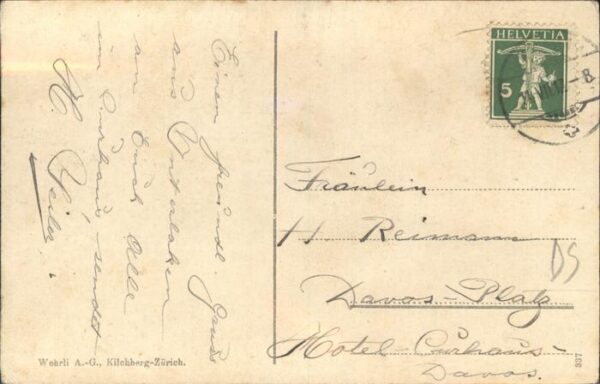 Einen freundl. Gruss
aus Interlaken
an Euch Alle
im Curhaus, sendet
H.
HELVETIA
5
Fräulein
H. Reimann
Davos-Platz
Hotel-Curhaus-
Davos.
DS
Wehrli A.-G., Kilchberg-Zürich.
337